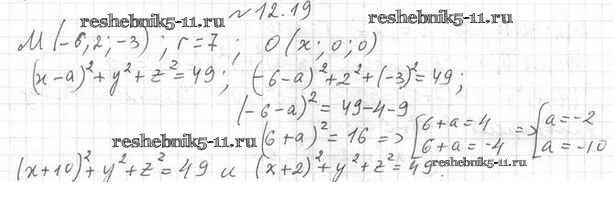 №12.19
reshebnik5-11.ru reshebnik5-11.ru
M(-6; 2; -3) ; r=7 ; O(x; 0; 0)
(x-a)²+y²+z²=49 ; (-6-a)²+2²+(-3)²=49;
(-6-a)²=49-4-9
reshebnik5-11.ru (6+a)²=16 => [6+a=4 => [a=-2
6+a=-4 a=-10
(x+10)²+y²+z²=49 и (x+2)²+y²+z²=49.
reshebnik5-11.ru